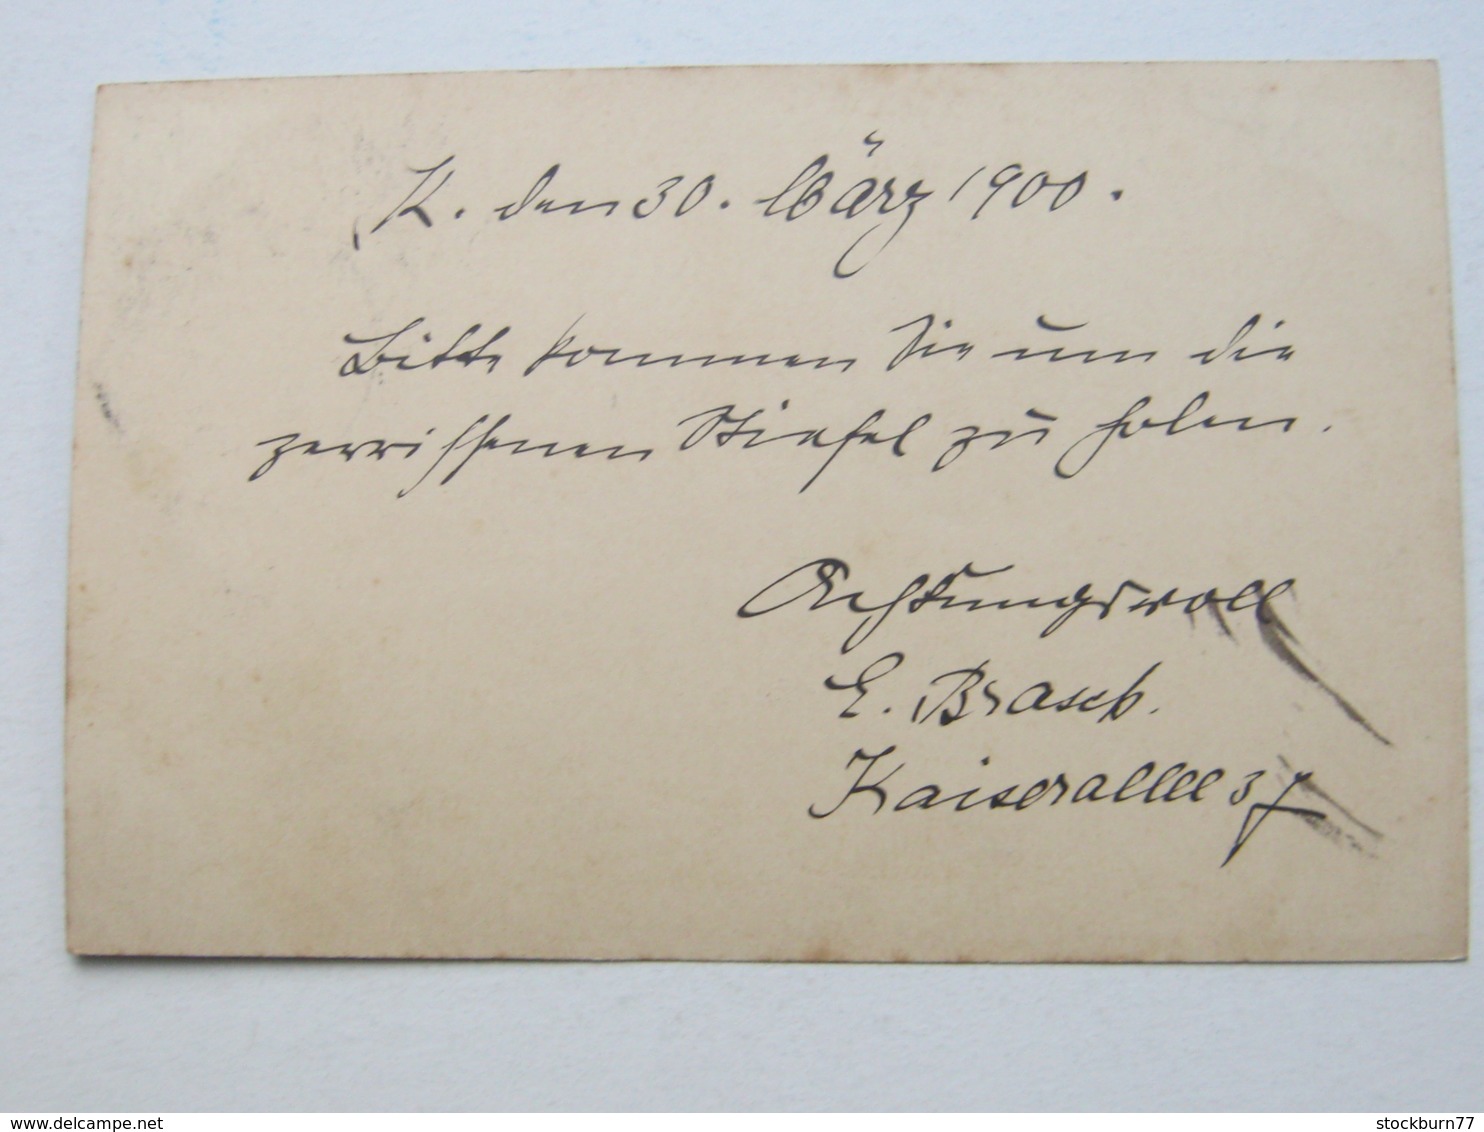 K. den 30. März 1900.
Bitte kommen Sie um die
zerrissenen Stiefel zu holen.
Achtungsvoll
E. Brasch.
Kaiserallee 37
stockburn77